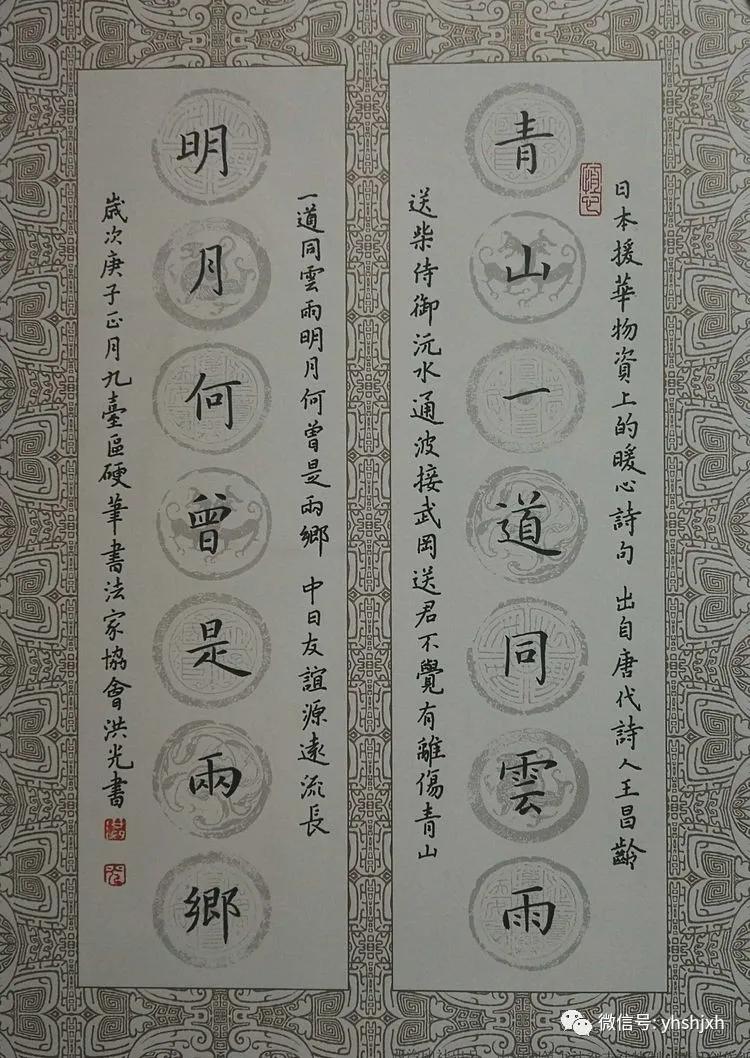 日本援華物資上的暖心詩句 出自唐代詩人王昌齡
青山一道同雲雨
送柴侍御沅水通波接武岡送君不覺有離傷青山
一道同雲雨明月何曾是兩鄉 中日友誼源遠流長
明月何曾是兩鄉
歲次庚子正月九臺區硬筆書法家協會洪光書
微信号: yhshjxh